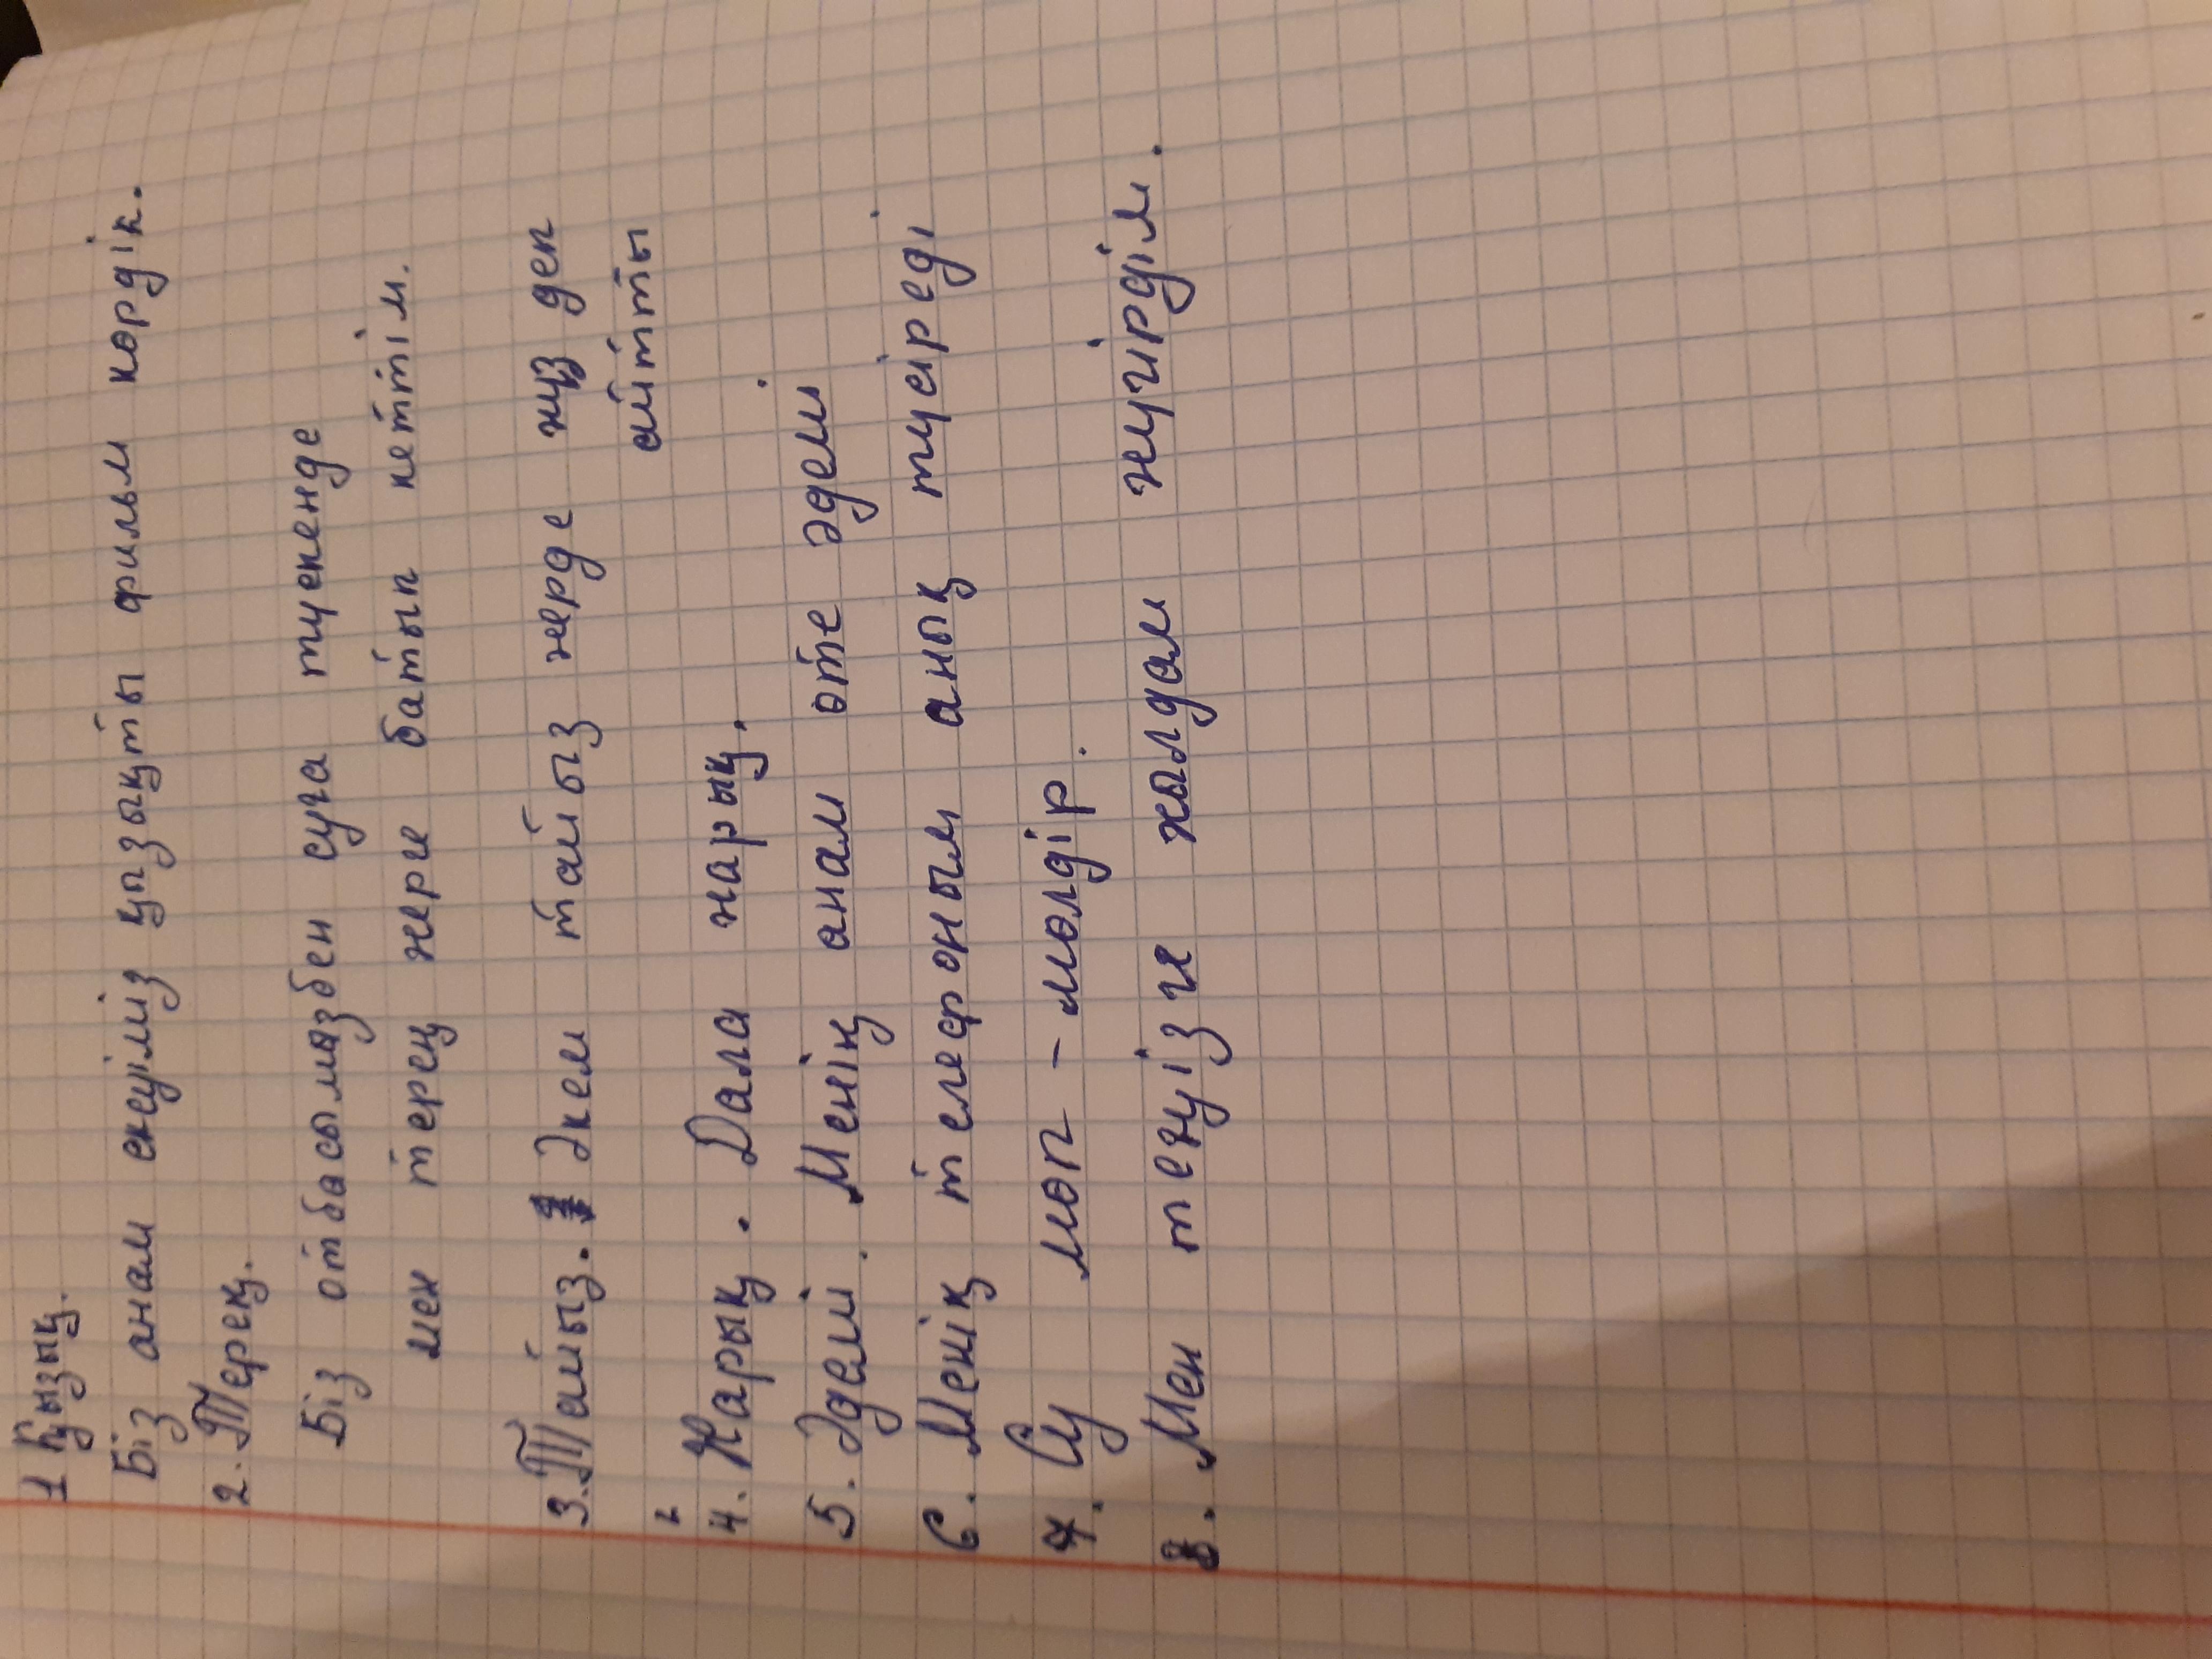 1 Қызық.
Біз анам екеуіміз қызықты фильм көрдік.
2. Терең.
Біз отбасымызбен суға түскенде
мен терең жерге батып кеттім.
3. Тайыз. Әкем тайыз жерде жүз деп
айтты
4. Жарық. Дала жарық.
5. Әдемі. Менің анам өте әдемі
6. Менің телефоным анық түсіреді
7. Су мөп - мөлдір.
8. Мен теңізге жылдам жүгірдім.